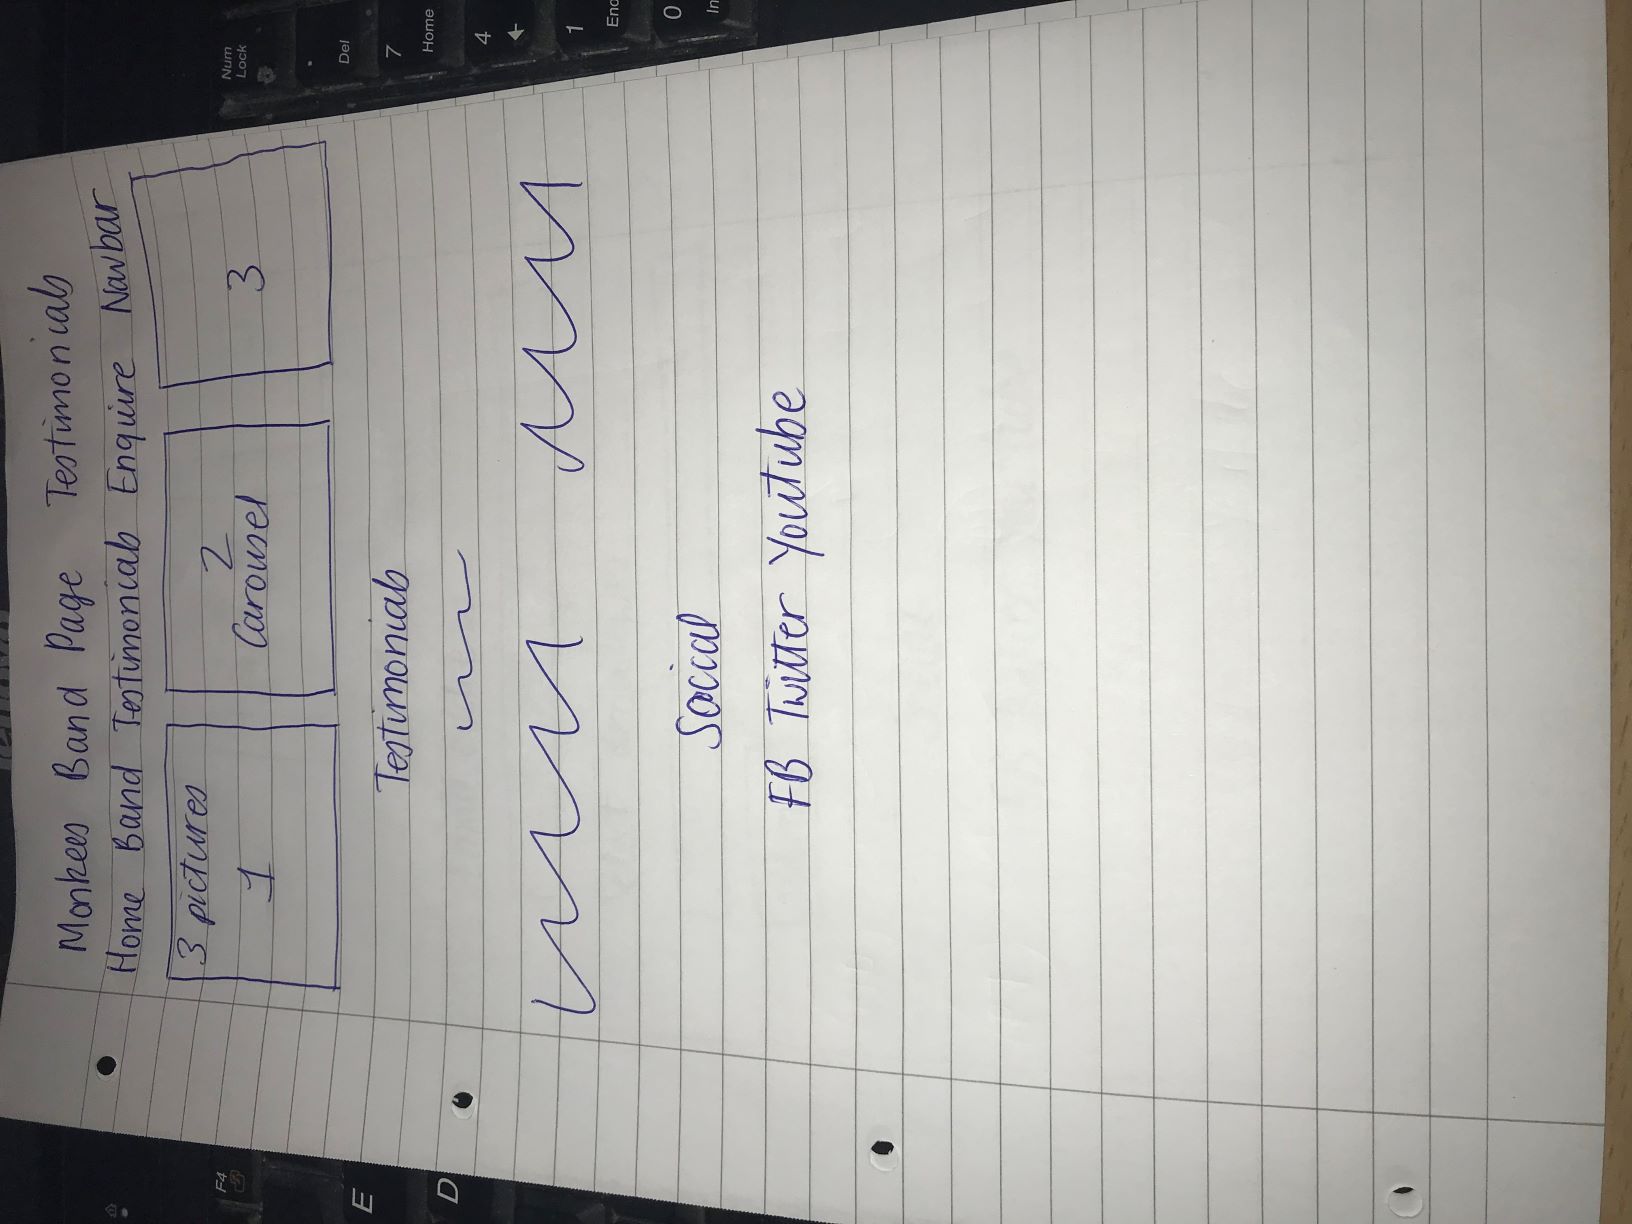 lenovo
Monkees Band Page Testimonials
Home Band Testimonials Enquire Navbar
3 pictures
1
2
Carousel
3
Testimonials
Social
FB Twitter Youtube
F4
E
D
Num
Lock
Del
7
Home
4
1
End
0
In